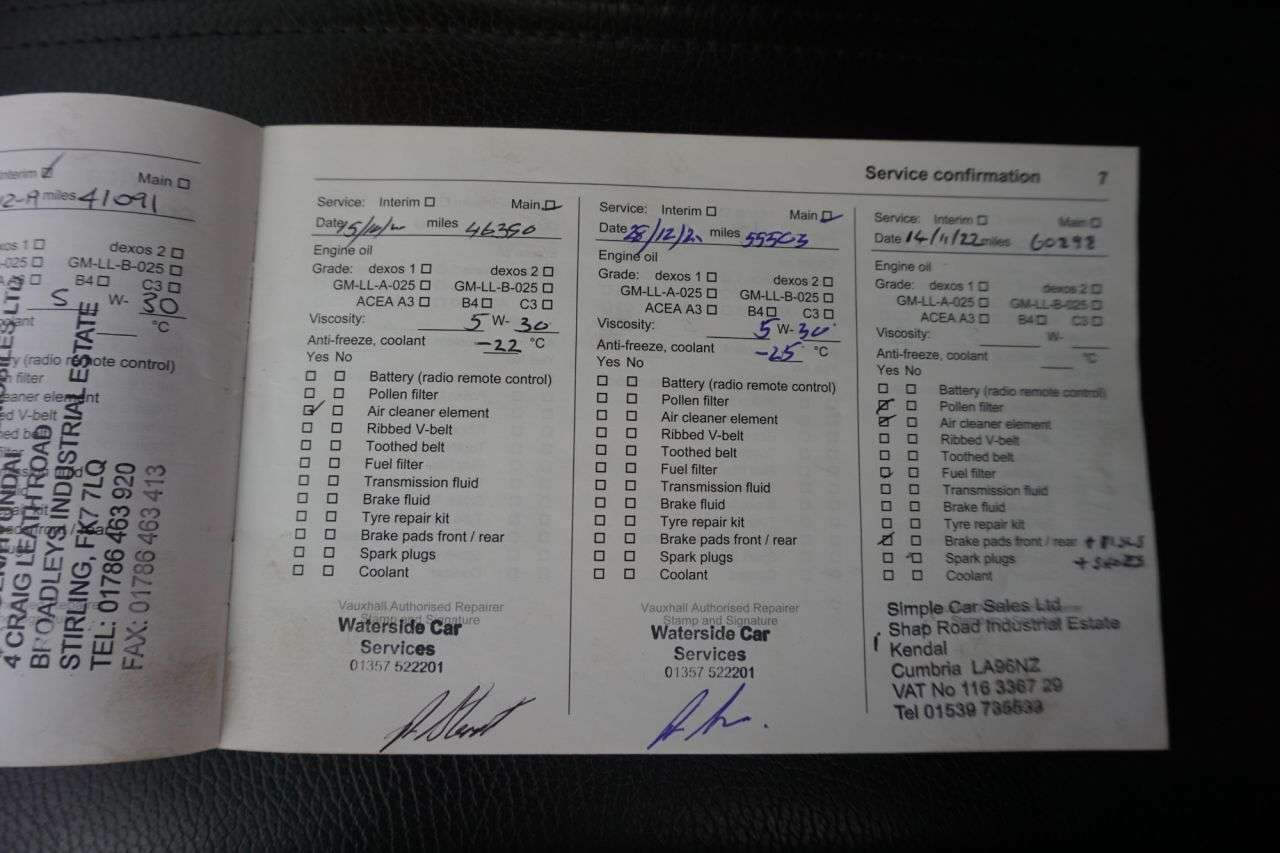 Interim
Main
miles 41091
dexos 1
dexos 2
-025
GM-LL-B-025
B4
C3
5 W- 30
°C
(radio remote control)
filter
element
V-belt
4 CRAIG LEITH ROAD
BROADLEYS INDUSTRIAL ESTATE
STIRLING, FK7 7LQ
TEL: 01786 463 920
FAX: 01786 463 413
Service confirmation 7
Service: Interim Main
Date miles 46350
Engine oil
Grade: dexos 1 dexos 2
GM-LL-A-025 GM-LL-B-025
ACEA A3 B4 C3
Viscosity: 5 W- 30
Anti-freeze, coolant -22 °C
Yes No
Battery (radio remote control)
Pollen filter
Air cleaner element
Ribbed V-belt
Toothed belt
Fuel filter
Transmission fluid
Brake fluid
Tyre repair kit
Brake pads front / rear
Spark plugs
Coolant
Vauxhall Authorised Repairer
Stamp and Signature
Waterside Car
Services
01357 522201
Service: Interim Main
Date miles 55503
Engine oil
Grade: dexos 1 dexos 2
GM-LL-A-025 GM-LL-B-025
ACEA A3 B4 C3
Viscosity: 5 W- 30
Anti-freeze, coolant -25 °C
Yes No
Battery (radio remote control)
Pollen filter
Air cleaner element
Ribbed V-belt
Toothed belt
Fuel filter
Transmission fluid
Brake fluid
Tyre repair kit
Brake pads front / rear
Spark plugs
Coolant
Vauxhall Authorised Repairer
Stamp and Signature
Waterside Car
Services
01357 522201
Service: Interim Main
Date 14/11/22 miles 60298
Engine oil
Grade: dexos 1 dexos 2
GM-LL-A-025 GM-LL-B-025
ACEA A3 B4 C3
Viscosity: W-
Anti-freeze, coolant °C
Yes No
Battery (radio remote control)
Pollen filter
Air cleaner element
Ribbed V-belt
Toothed belt
Fuel filter
Transmission fluid
Brake fluid
Tyre repair kit
Brake pads front / rear
Spark plugs + SHOES
Coolant
Simple Car Sales Ltd
Shap Road Industrial Estate
Kendal
Cumbria LA96NZ
VAT No 116 3367 29
Tel 01539 735533